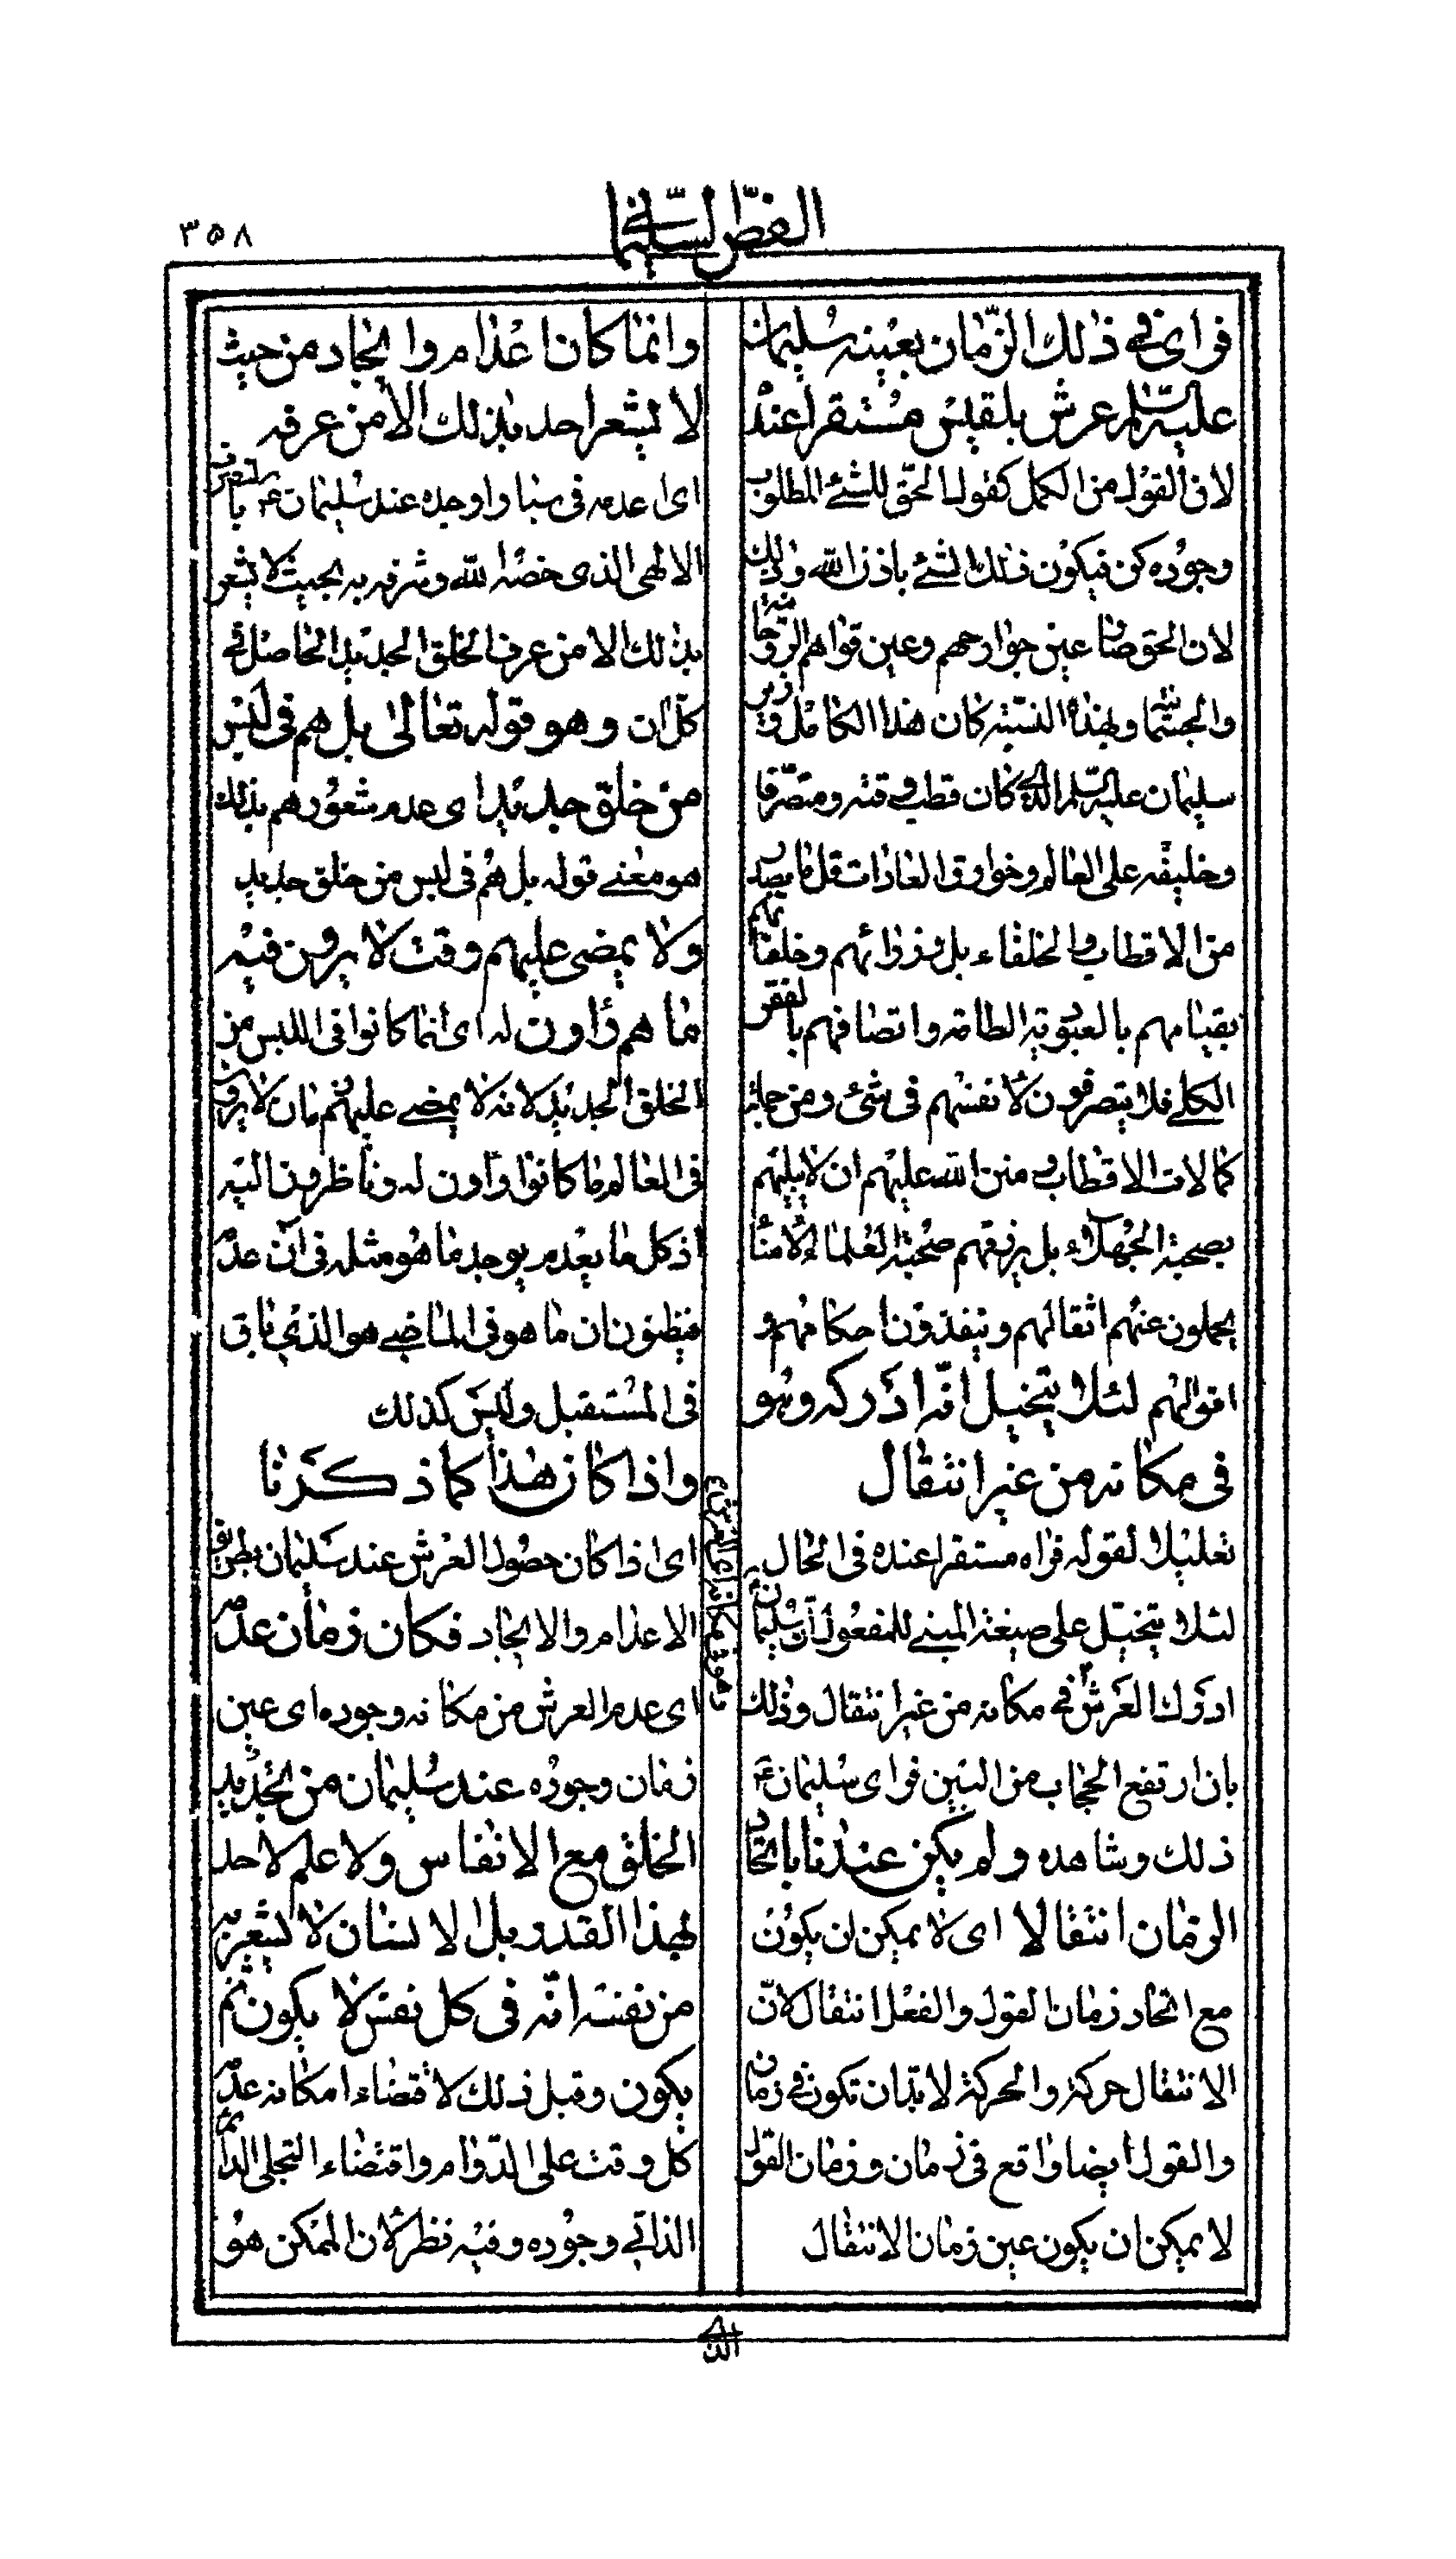 ٣٥٨
الفص السليماني
فرأى في ذلك الزمان بعينه سليمان
عليه السلم عرش بلقيس مستقرا عنده
لان القول من الكمل كقول الحق للشئ المطلوب
وجوده كن فيكون ذلك الشئ باذن الله وذلك
لان الحق صار عين جوارحهم وعين قواهم الروحانية
والجسمانية وبهذه النسبة كان هذا الكامل وزير
سليمان عليه السلم الذي كان قطب وقته ومتصرفا
وخليفة على العالم وخوارق العادات قل ما يصدر
من الاقطاب والخلفاء بل وزرائهم وخلفائهم
بقيامهم بالعبودية التامة واتصافهم بالفقر
الكلي فلا يتصرفون لانفسهم في شئ ومن جملة
كمالات الاقطاب ومنن الله عليهم ان لا يبليهم
بصحبة الجهلاء بل يرزقهم صحبة العلماء الامناء
يحملون عنهم اثقالهم وينفذون احكامهم و
اقوالهم لئلا يتخيل انه ادركه وهو
في مكانه من غير انتقال
تعليل لقوله فراه مستقرا عنده في الحال
لئلا يتخيل على صيغة المبني للمفعول ان سليمان
ادرك العرش في مكانه من غير انتقال وذلك
بان ارتفع الحجاب من البين فرأى سليمان ع
ذلك وشاهده ولم يكن عندنا باتحاد
الزمان انتقالا اى لا يمكن ان يكون
مع اتحاد زمان القول والفعل انتقال لان
الانتقال حركة والحركة لا بد ان تكون في زمان
والقول ايضا واقع في زمان وزمان القول
لا يمكن ان يكون عين زمان الانتقال
وانما كان اعدام وايجاد من حيث
لا يشعر احد بذلك الا من عرفه
اى اعدمه في سبا واوجده عند سليمان ع بالتصرف
الالهي الذى خصه الله وشرفه به بحيث لا يشعر
بذلك الا من عرف الخلق الجديد الحاصل في
كل ان وهو قوله تعالى بل هم في لبس
من خلق جديد اى عدم شعورهم بذلك
هو معنى قوله بل هم في لبس من خلق جديد
ولا يمضى عليهم وقت لا يرون فيه
ما هم راون له اى انما كانوا في اللبس من
الخلق الجديد لانه لا يمضي عليهم زمان لا يرون
في العالم ما كانوا راون له وناظرون اليه
اذ كل ما يعدم يوجد ما هو مثله في آن عدمه
فيظنون ان ما هو في الماضي هو الذي باقى
في المستقبل وليس كذلك
واذا كان هذا كما ذكرنا
اى اذا كان حصول العرش عند سليمان بطريق
الاعدام والايجاد فكان زمان عدمه
اى عدم العرش من مكانه وجوده اى عين
زمان وجوده عند سليمان من تجديد
الخلق مع الانفاس ولا علم لاحد
بهذا القدر بل الانسان لا يشعر به
من نفسه انه في كل نفس لا يكون ثم
يكون وقيل ذلك لاقتضاء امكانه عدمه
كل وقت على الدوام واقتضاء التجلى الدائم
الذاتي وجوده وفيه نظر لان الممكن هو
الذي